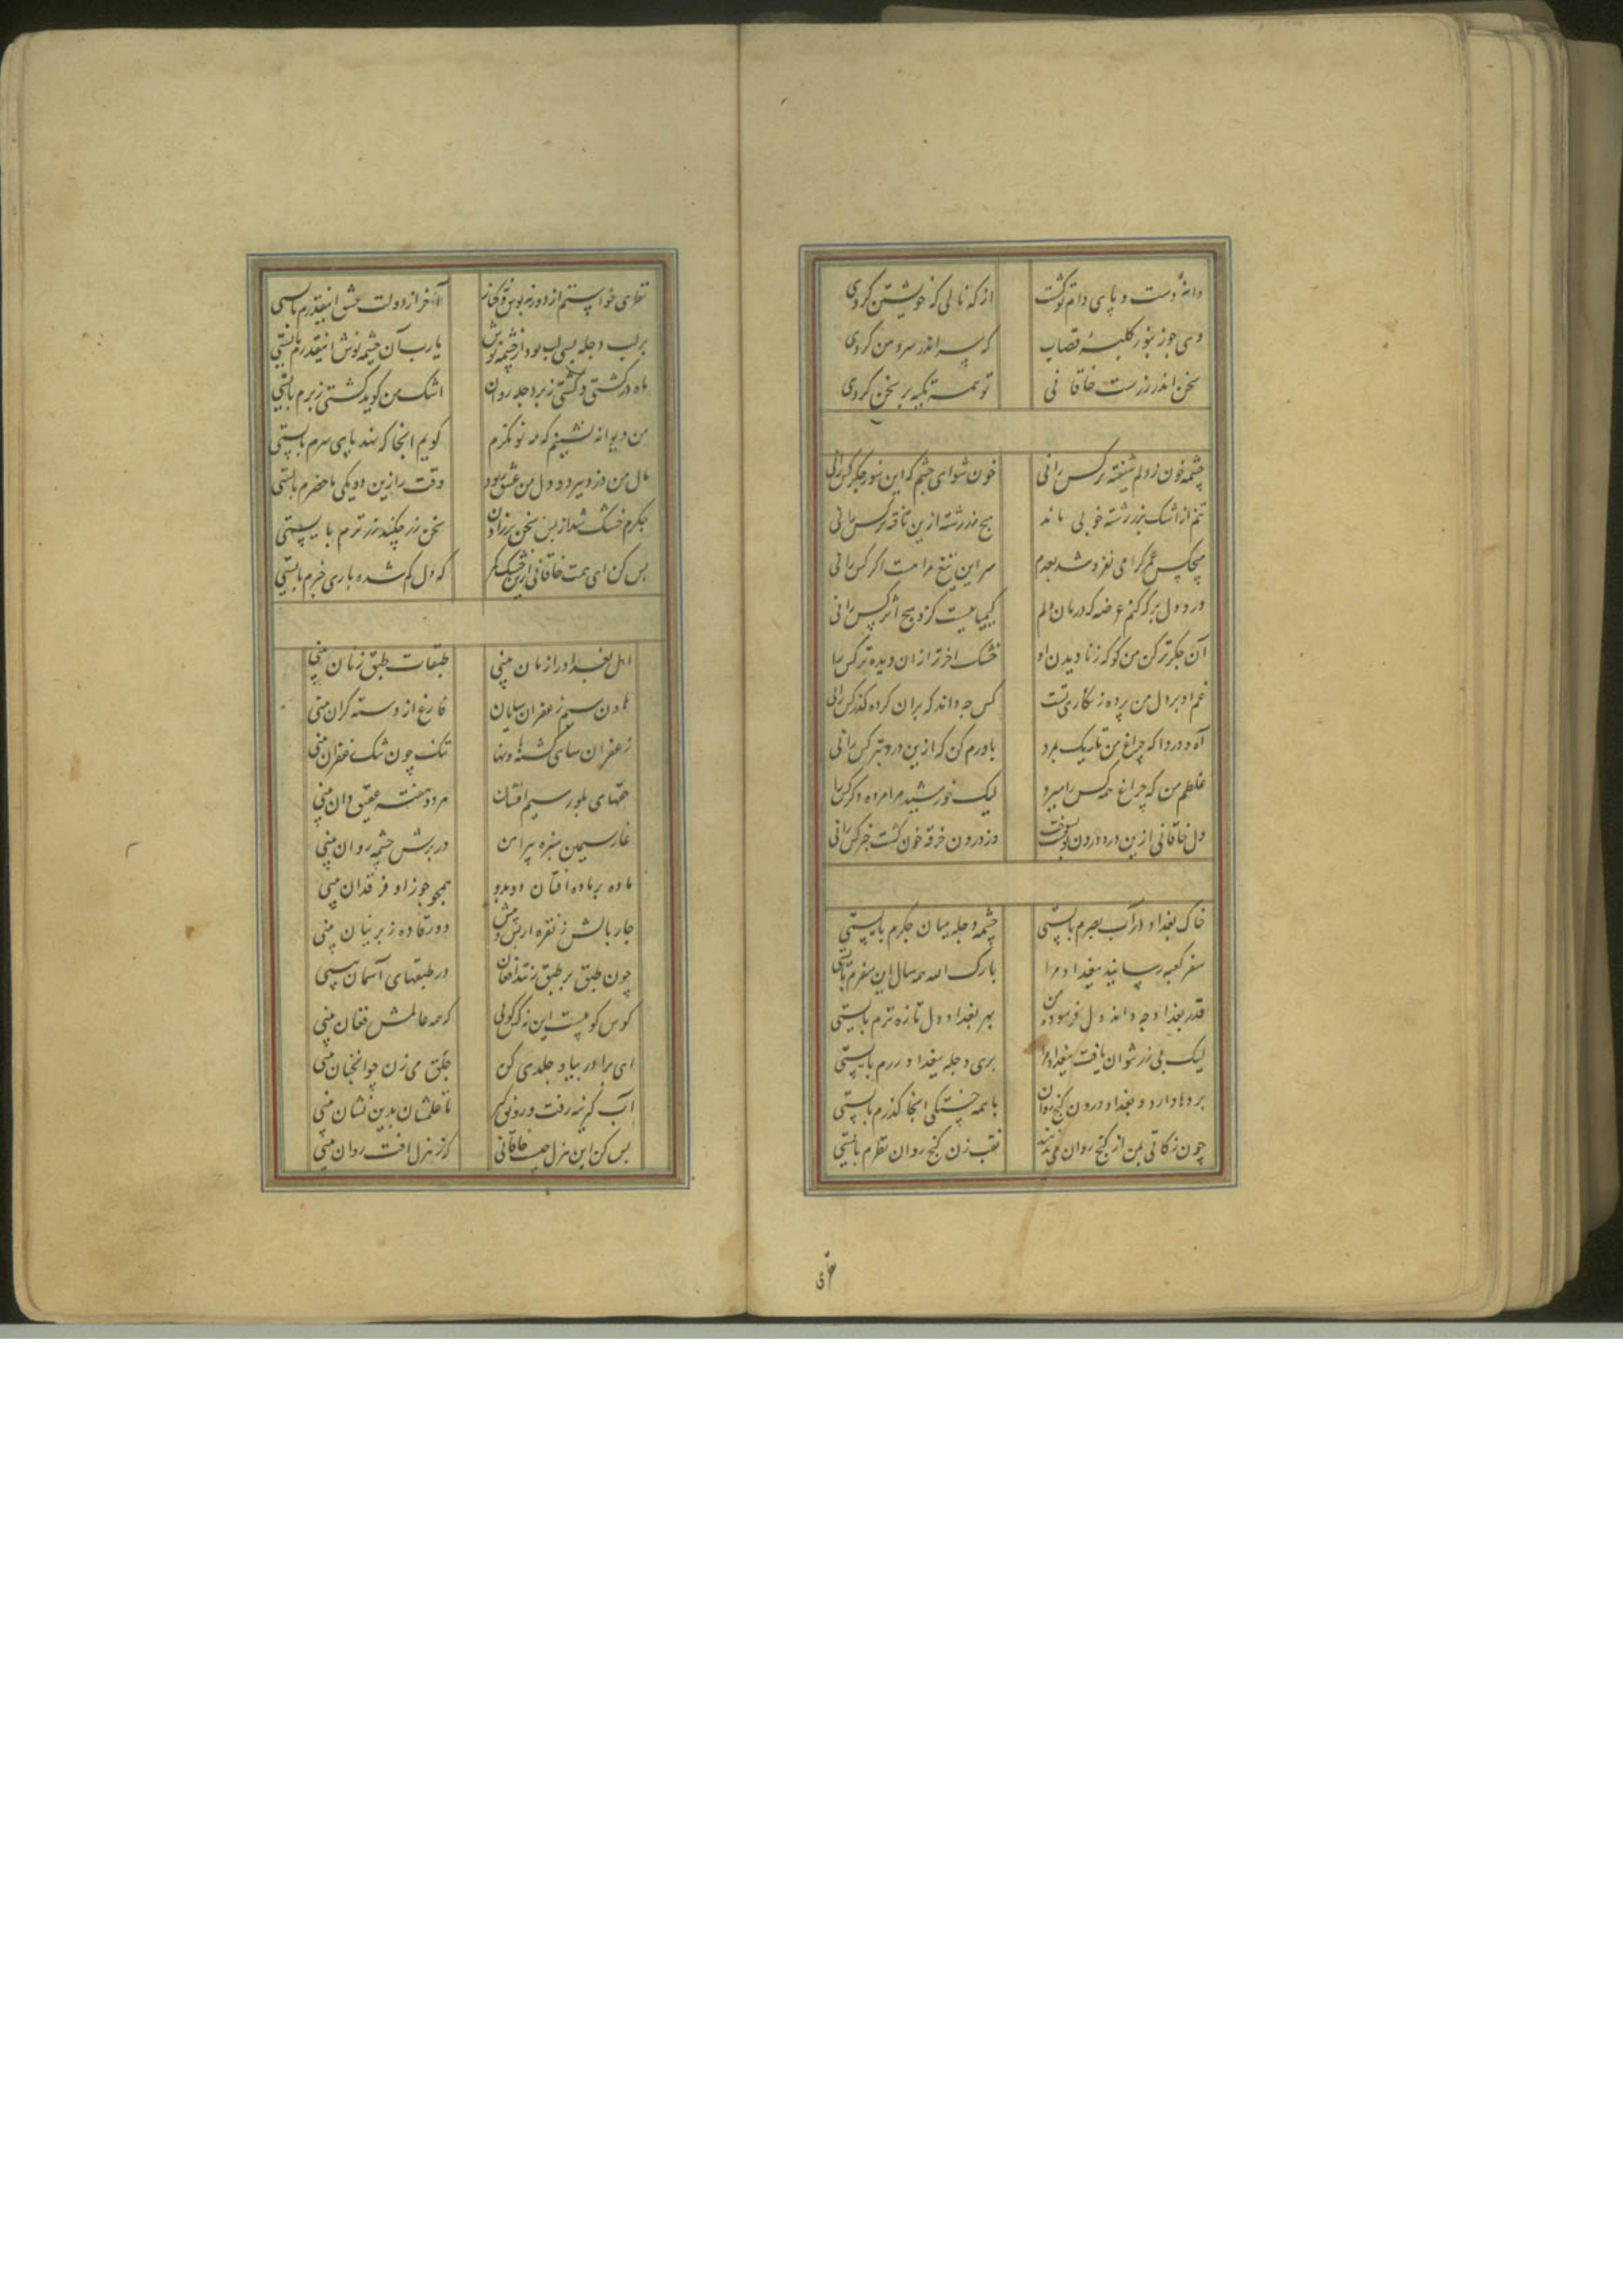 دانهٔ دست و پای دام تو گشت
از که نالی که خویشتن کردی
دی جو زنبور کلبهٔ قصاب
که سر اندر سر دهن کردی
سخن اندر زرست خاقانی
تو همه تکیه بر سخن کردی
چشمه خون ز دلم شیفته تر کس رانی
خون شو ای چشم که این سوز جگر کس رانی
تنم از اشک بزر رشته خونی ماند
هیچ زر رشته ازین تافته تر کس رانی
هیچکس عمر گرامی نفروشد بعدم
سر این تیغ مرا هست اگر کس رانی
درد دل بر که کنم عرضه که درمان دلم
کیمیاییست کزو هیچ اثر کس رانی
آن جگر تر کن من کو که ز نادیدن او
خشک آخرتر ازان دیده تر کس را
غم او بر دل من پرده زنگاری بست
کس چه داند که بران کرده گذر کس رانی
آه و دردا که چراغ من تاریک بمرد
باورم کن که ازین درد بتر کس رانی
غلطم من که چراغ همه کس را میرد
لیک خورشید مرا مرده دگر کس را
دل خاقانی ازین درد درون بسوخت
وز درون غرقه خون گشت خبر کس رانی
خاک بغداد در آب بصرم بایستی
چشمه دجله میان جگرم بایستی
سفر کعبه رسانید ببغداد مرا
بارک الله همه سال این سفرم بایستی
قدر بغداد چه داند دل فرسوده من
بهر بغداد دل تازه ترم بایستی
لیک بی زر نتوان یافت ببغداد مرا
بری دجله ببغداد زرم بایستی
بردها دارد بغداد و درون گنج روان
با همه خستگی انجا گذرم بایستی
چون زکاتی بمن از گنج روان می ندهند
نقب زن گنج روان نظرم بایستی
نظری خواستم از دور نه بوس و نه کنار
آخر از دولت عشق اینقدرم بایستی
بر لب دجله بسی لب بود از چشمه نوش
یارب آن چشمه نوش اینقدرم بایستی
ماه در کشتی و کشتی زبر دجله روان
اشک من گوید کشتی زبرم بایستی
من دیوانه نشینم که مه نو نگرم
گویم انجا که نهد پای سرم بایستی
مال من دزد ببرد و دل من عشق ربود
وقت را زین دو یکی ماحضرم بایستی
جگرم خشک شد از بس سخن تر زادن
سخن تر چکند زر ترم بایستی
بس کن ای همت خاقانی ازین خشک مگر
که دل گم شده باری خبرم بایستی
اهل بغداد را زنان بینی
طبقات طبق زنان بینی
هاون سیم زعفران سایان
فارغ از دسته گران بینی
زعفران سای گشته هاونها
تنک چون تنک زعفران بینی
حقهای بلور سیم افشان
مرد و هفته عقیق دان بینی
غار سیمین سبزه پیرامن
در برش چشمه روان بینی
ماده بر ماده افتان دو بدو
همچو جوزا و فرقدان بینی
چار بالش ز نقره از پس و پیش
دو رفاده ز پرنیان بینی
چون طبق بر طبق زنند افغان
در طبقهای آسمان بینی
کوس کوبیست این نه کس کوبی
که همه عالمش فغان بینی
ای برادر بیا و جلدی کن
جلق می زن چو انچنان بینی
آب گیر نه رفت و رونق گیر
تا غلمشان بدین نشان بینی
بس کن این هزل چیست خاقانی
کز هزل آفت روان بینی